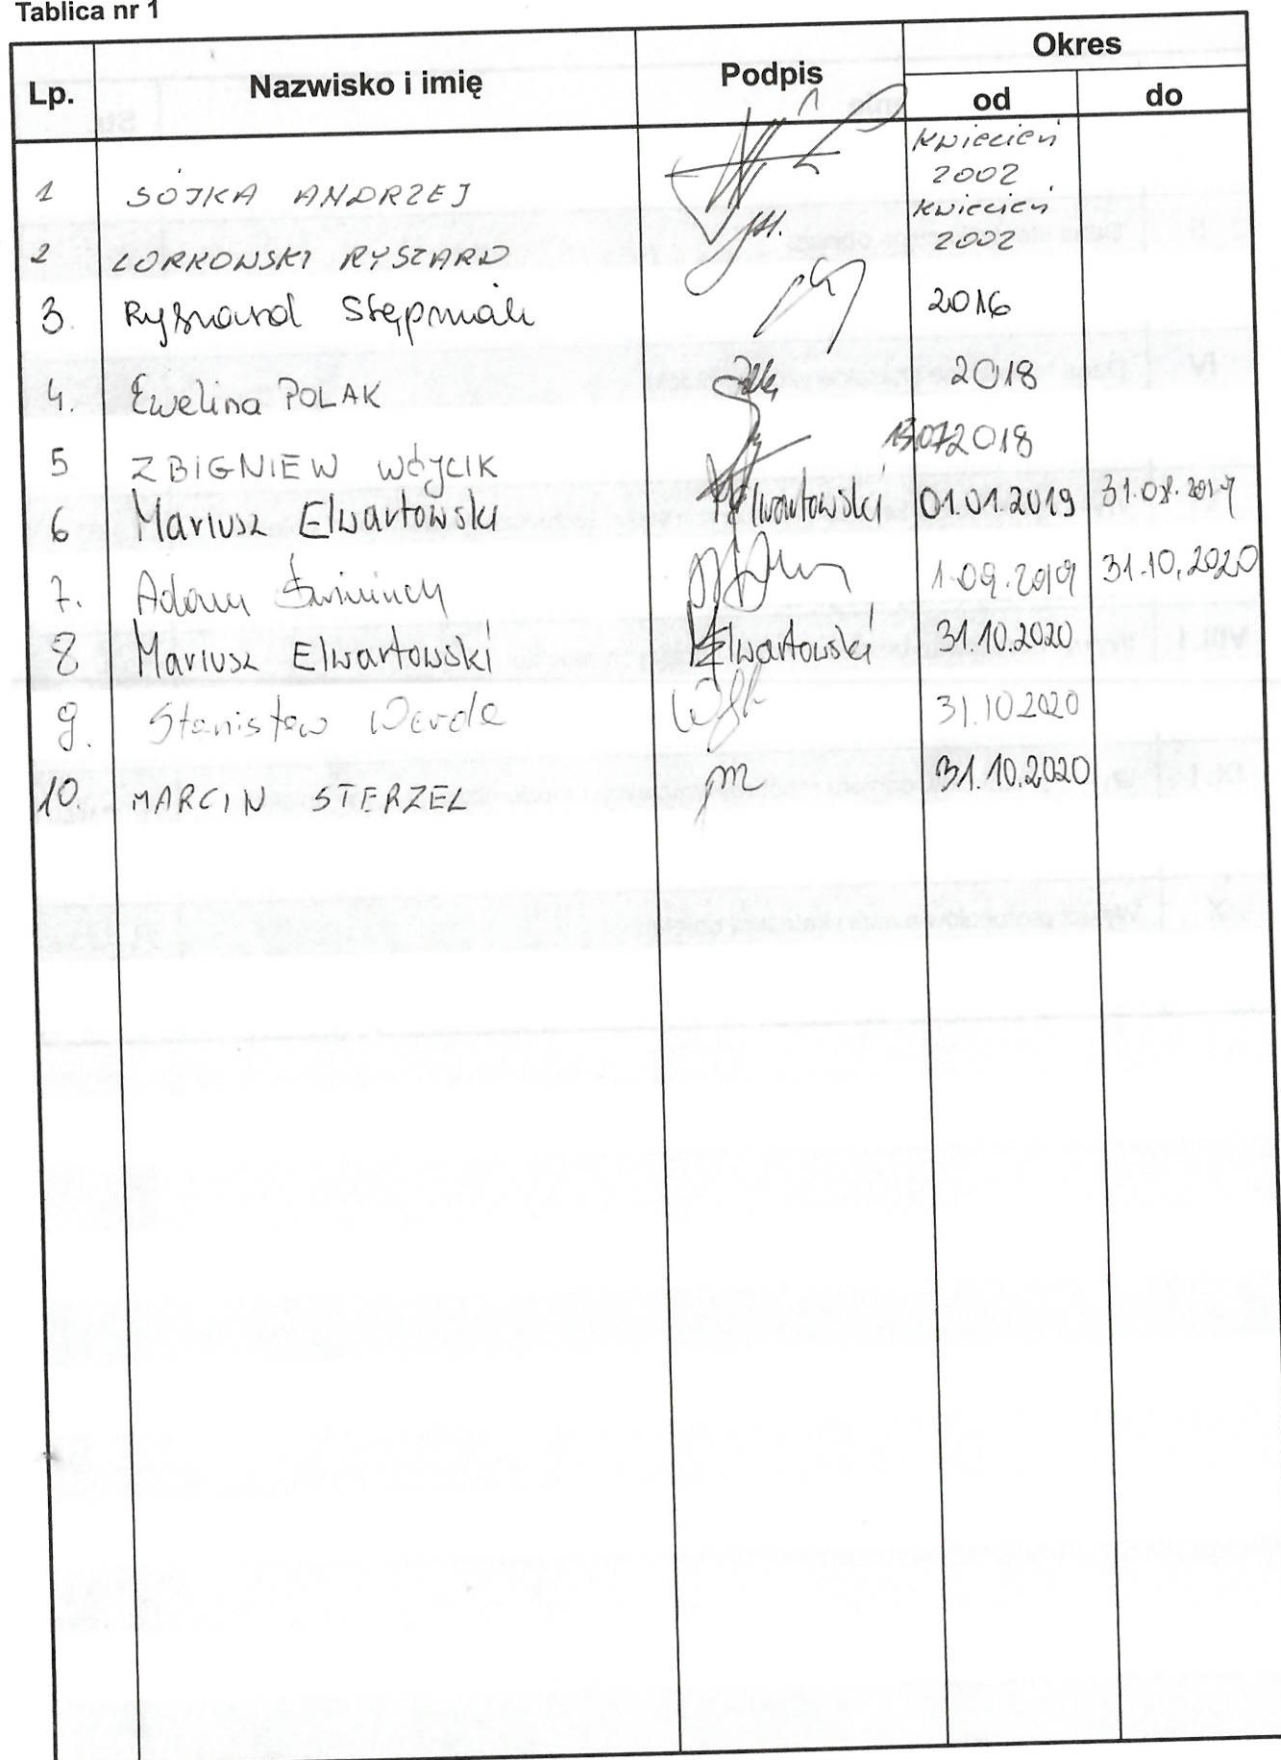 Tablica nr 1
Lp. Nazwisko i imię Podpis Okres
od do
1 SÓJKA ANDRZEJ kwiecień 2002
2 LORKOWSKI RYSZARD kwiecień 2002
3. Ryszard Stępniak 2016
4. Ewelina POLAK 2018
5 ZBIGNIEW WÓJCIK 13.07.2018
6 Mariusz Elwartowski Elwartowski 01.01.2019 31.08.2019
7. Adam 1.09.2019 31.10.2020
8 Mariusz Elwartowski Elwartowski 31.10.2020
9. Stanisław Warda 31.10.2020
10. MARCIN STERZEL 31.10.2020